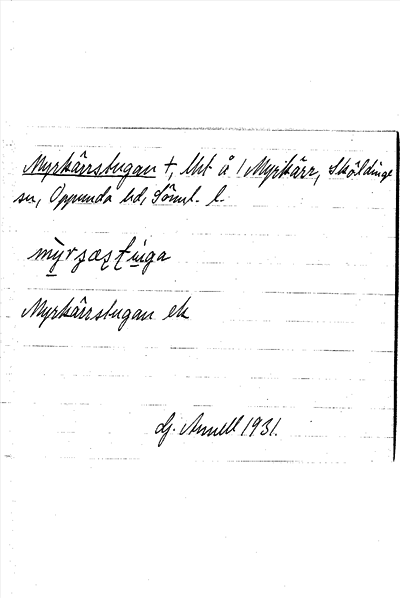 Myrkärrstugan †, lht å 1 Myrkärr, Sköldinge
sn, Oppunda hd, Söml. l.
Myrkärrstugan ek
G. Annell 1931.